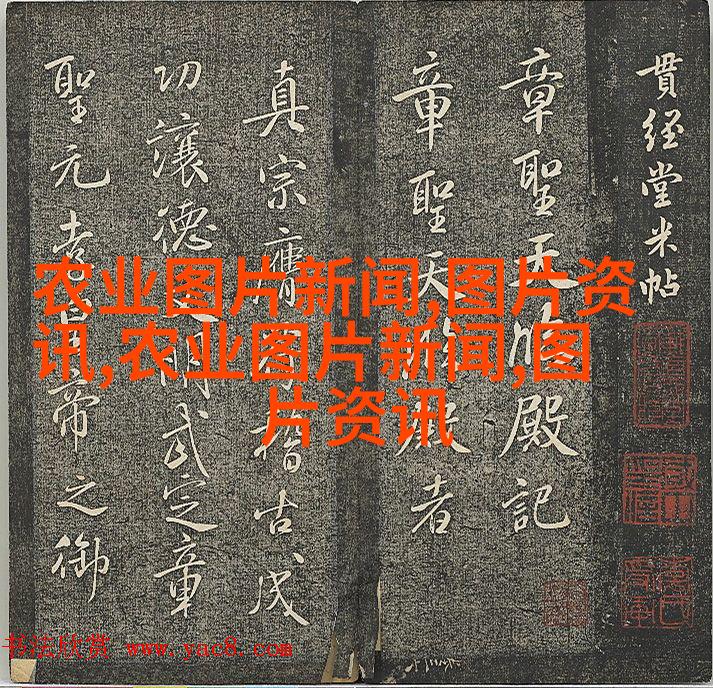 貫經堂米帖
章聖天殿記
章聖天殿者
真宗膺稽古成
功讓德明武定章
聖元孝皇帝之御
农业图片新闻,图片资
讯,农业图片新闻,图
片资讯
书法欣赏 www.yac8.com